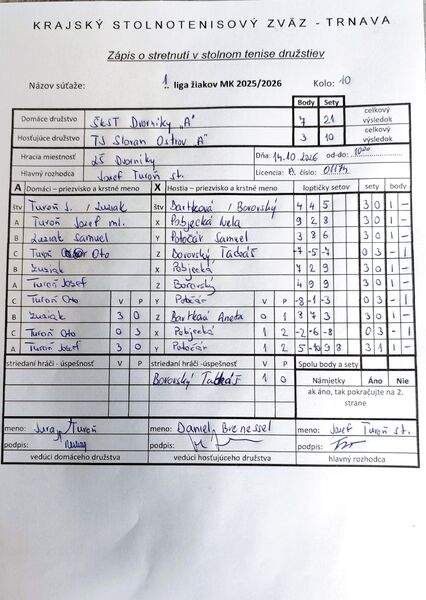 KRAJSKÝ STOLNOTENISOVÝ ZVÄZ - TRNAVA
Zápis o stretnutí v stolnom tenise družstiev
Názov súťaže: 1. liga žiakov MK 2025/2026 Kolo: 10
Body Sety
Domáce družstvo ŠKST Dvorníky „A" 7 21 celkový výsledok
Hosťujúce družstvo TJ Slovan Ostrov A" 3 10 celkový výsledok
Hracia miestnosť ZŠ Dvorníky Dňa: 14.10.2026 od-do: 1000
Hlavný rozhodca Jozef Turoň st. Licencia: A číslo: 01174
A Domáci – priezvisko a krstné meno X Hostia – priezvisko a krstné meno loptičky setov sety body
štv Turoň J. / Lusiak štv Bartková / Borovský 4 4 5 3 0 1 –
A Turoň Jozef ml. X Pobjecká Nela 9 2 8 3 0 1 –
B Lusiak Samuel Y Potočár Samuel 3 8 6 3 0 1 –
C Turoň Oto Z Borovský Tadeáš -7 -5 -7 0 3 – 1
B Lusiak X Pobjecká 7 2 9 3 0 1 –
A Turoň Jozef Z Borovský 4 9 9 3 0 1 –
C Turoň Oto V P Y Potočár V P -8 -1 -3 0 3 – 1
B Lusiak 3 0 Z Bartková Aneta 0 1 8 7 3 3 0 1 –
C Turoň Oto 0 3 X Pobjecká 1 2 -2 -6 -8 0 3 – 1
A Turoň Jozef 3 0 Y Potočár 1 2 5 -10 9 8 3 1 1 –
striedaní hráči -úspešnosť V P striedaní hráči -úspešnosť V P Spolu body a sety
Borovský Tadeáš 1 0 Námietky Áno Nie
ak áno, tak pokračujte na 2. strane
meno: Juraj Turoň meno: Daniel Brenessel meno: Jozef Turoň st.
podpis: podpis: podpis:
vedúci domáceho družstva vedúci hosťujúceho družstva hlavný rozhodca